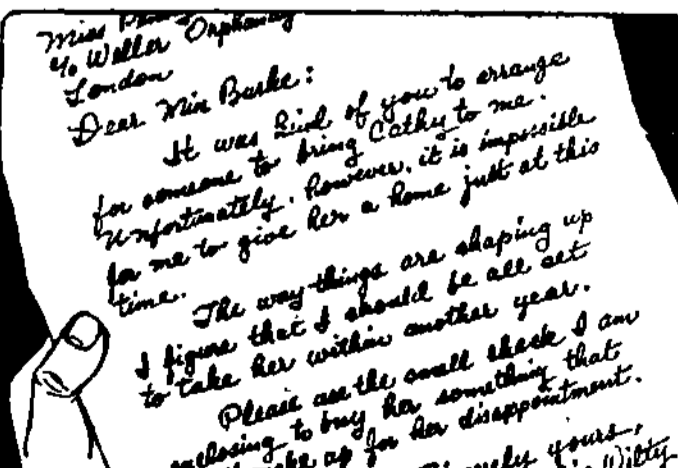 Miss
c/o Weller Orphanage
London
Dear Miss Burke:
It was kind of you to arrange
for someone to bring Cathy to me.
Unfortunately, however, it is impossible
for me to give her a home just at this
time.
The way things are shaping up
I figure that I should be all set
to take her within another year.
Please use the small check I am
enclosing to buy her something that
make up for her disappointment.
yours,
Wilty